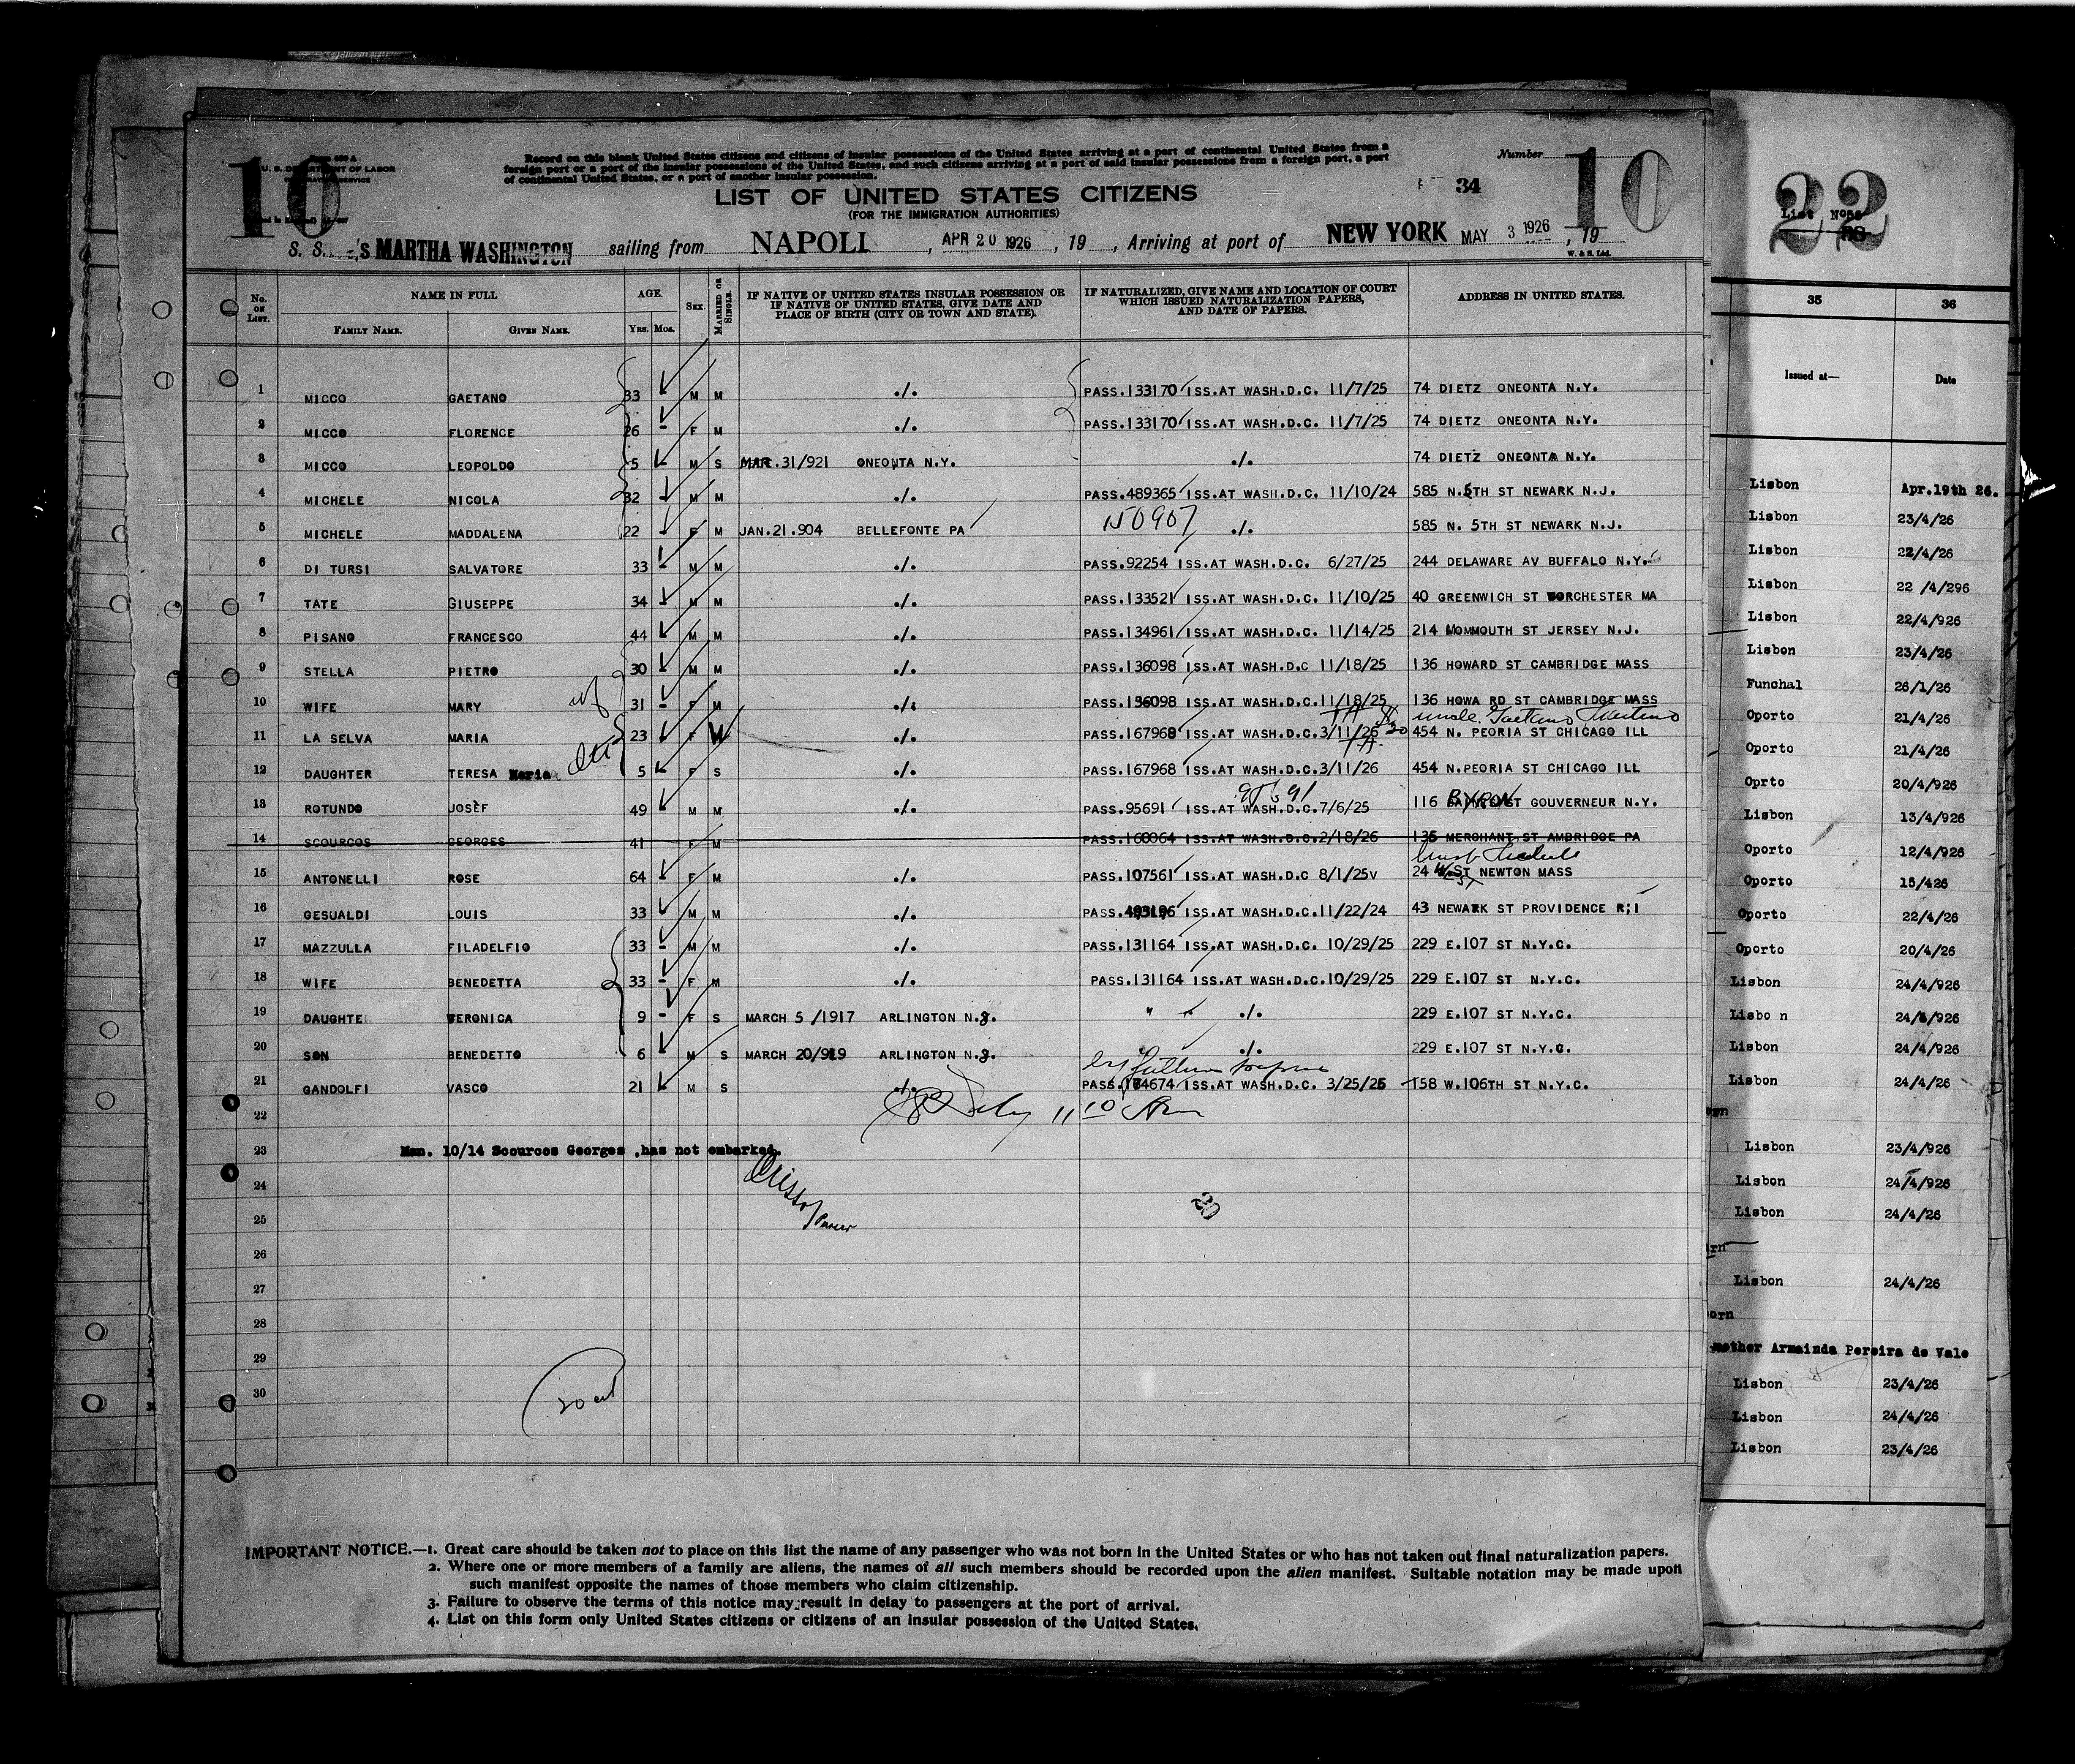 10
U. S. DEPARTMENT OF LABOR
Record on this blank United States citizens and citizens of insular possessions of the United States arriving at a port of continental United States from a
foreign port or a port of the insular possessions of the United States, and such citizens arriving at a port of said insular possessions from a foreign port, a port
of continental United States, or a port of another insular possession.
Number 10
34
LIST OF UNITED STATES CITIZENS
(FOR THE IMMIGRATION AUTHORITIES)
S. S. MARTHA WASHINGTON sailing from NAPOLI, APR 20 1926, 19 , Arriving at port of NEW YORK MAY 3 1926, 19
W. & S. Ltd.
No. ON LIST. NAME IN FULL AGE. SEX. MARRIED OR SINGLE. IF NATIVE OF UNITED STATES INSULAR POSSESSION OR IF NATIVE OF UNITED STATES, GIVE DATE AND PLACE OF BIRTH (CITY OR TOWN AND STATE). IF NATURALIZED, GIVE NAME AND LOCATION OF COURT WHICH ISSUED NATURALIZATION PAPERS, AND DATE OF PAPERS. ADDRESS IN UNITED STATES.
FAMILY NAME. GIVEN NAME. YRS. MOS.
1 MICCO GAETANO 33 M M ./. PASS.133170 ISS.AT WASH.D.C. 11/7/25 74 DIETZ ONEONTA N.Y.
2 MICCO FLORENCE 26 - F M ./. PASS.133170 ISS.AT WASH.D.C. 11/7/25 74 DIETZ ONEONTA N.Y.
3 MICCO LEOPOLDO 5 - M S MAR.31/921 ONEONTA N.Y. ./. 74 DIETZ ONEONTA N.Y.
4 MICHELE NICOLA 32 - M M ./. PASS.489365 ISS.AT WASH.D.C. 11/10/24 585 N.5TH ST NEWARK N.J.
5 MICHELE MADDALENA 22 - F M JAN.21.904 BELLEFONTE PA 150907 ./. 585 N. 5TH ST NEWARK N.J.
6 DI TURSI SALVATORE 33 - M M ./. PASS.92254 ISS.AT WASH.D.C. 6/27/25 244 DELAWARE AV BUFFALO N.Y.
7 TATE GIUSEPPE 34 - M M ./. PASS.133521 ISS.AT WASH.D.C. 11/10/25 40 GREENWICH ST WORCHESTER MA
8 PISANO FRANCESCO 44 - M M ./. PASS.134961 ISS.AT WASH.D.C. 11/14/25 214 MOMMOUTH ST JERSEY N.J.
9 STELLA PIETRO 30 - M M ./. PASS.136098 ISS.AT WASH.D.C 11/18/25 136 HOWARD ST CAMBRIDGE MASS
10 WIFE MARY wf 31 - F M ./. PASS.136098 ISS.AT WASH.D.C.11/18/25 136 HOWA RD ST CAMBRIDGE MASS
uncle Gaetano
11 LA SELVA MARIA 23 - F W ./. PASS.167968 ISS.AT WASH.D.C.3/11/26 454 N. PEORIA ST CHICAGO ILL
12 DAUGHTER TERESA Maria 5 - F S ./. PASS.167968 ISS.AT WASH.D.C.3/11/26 454 N.PEORIA ST CHICAGO ILL
13 ROTUNDO JOSEF 49 M M ./. PASS.95691 ISS.AT WASH.D.C.7/6/25 116 BYRON ST GOUVERNEUR N.Y.
14 SCOURCOS GEORGES 41 F M PASS.160064 ISS.AT WASH.D.C.2/18/26 135 MERCHANT ST AMBRIDGE PA
15 ANTONELLI ROSE 64 - F M ./. PASS.107561 ISS.AT WASH.D.C 8/1/25 24 WEST ST NEWTON MASS
16 GESUALDI LOUIS 33 - M M ./. PASS.493196 ISS.AT WASH.D.C.11/22/24 43 NEWARK ST PROVIDENCE R;I
17 MAZZULLA FILADELFIO 33 - M M ./. PASS.131164 ISS.AT WASH.D.C. 10/29/25 229 E.107 ST N.Y.C.
18 WIFE BENEDETTA 33 - F M ./. PASS.131164 ISS.AT WASH.D.C.10/29/25 229 E.107 ST N.Y.C.
19 DAUGHTE VERONICA 9 - F S MARCH 5 /1917 ARLINGTON N.J. " ./. 229 E.107 ST N.Y.C.
20 SON BENEDETTO 6 M S MARCH 20/919 ARLINGTON N.J. ./. 229 E.107 ST N.Y.C.
21 GANDOLFI VASCO 21 - M S ./. PASS.174674 ISS.AT WASH.D.C. 3/25/26 158 W.106TH ST N.Y.C.
22
23 Man. 10/14 Scourcos Georges ,has not embarked.
24
25
26
27
28
29
30
20
IMPORTANT NOTICE.—1. Great care should be taken not to place on this list the name of any passenger who was not born in the United States or who has not taken out final naturalization papers.
2. Where one or more members of a family are aliens, the names of all such members should be recorded upon the alien manifest. Suitable notation may be made upon
such manifest opposite the names of those members who claim citizenship.
3. Failure to observe the terms of this notice may result in delay to passengers at the port of arrival.
4. List on this form only United States citizens or citizens of an insular possession of the United States.
22
35 36
Issued at— Date
Lisbon Apr.19th 26.
Lisbon 23/4/26
Lisbon 22/4/26
Lisbon 22 /4/296
Lisbon 22/4/926
Lisbon 23/4/26
Funchal 26/1/26
Oporto 21/4/26
Oporto 21/4/26
Oprto 20/4/926
Lisbon 13/4/926
Oporto 12/4/926
Oporto 15/426
Oporto 22/4/26
Oporto 20/4/26
Lisbon 24/4/926
Lisbo n 24/4/926
Lisbon 24/4/926
Lisbon 24/4/26
Lisbon 23/4/926
Lisbon 24/4/926
Lisbon 24/4/26
Lisbon 24/4/26
mother Armainda Pereira de Vale
Lisbon 23/4/26
Lisbon 24/4/26
Lisbon 23/4/26